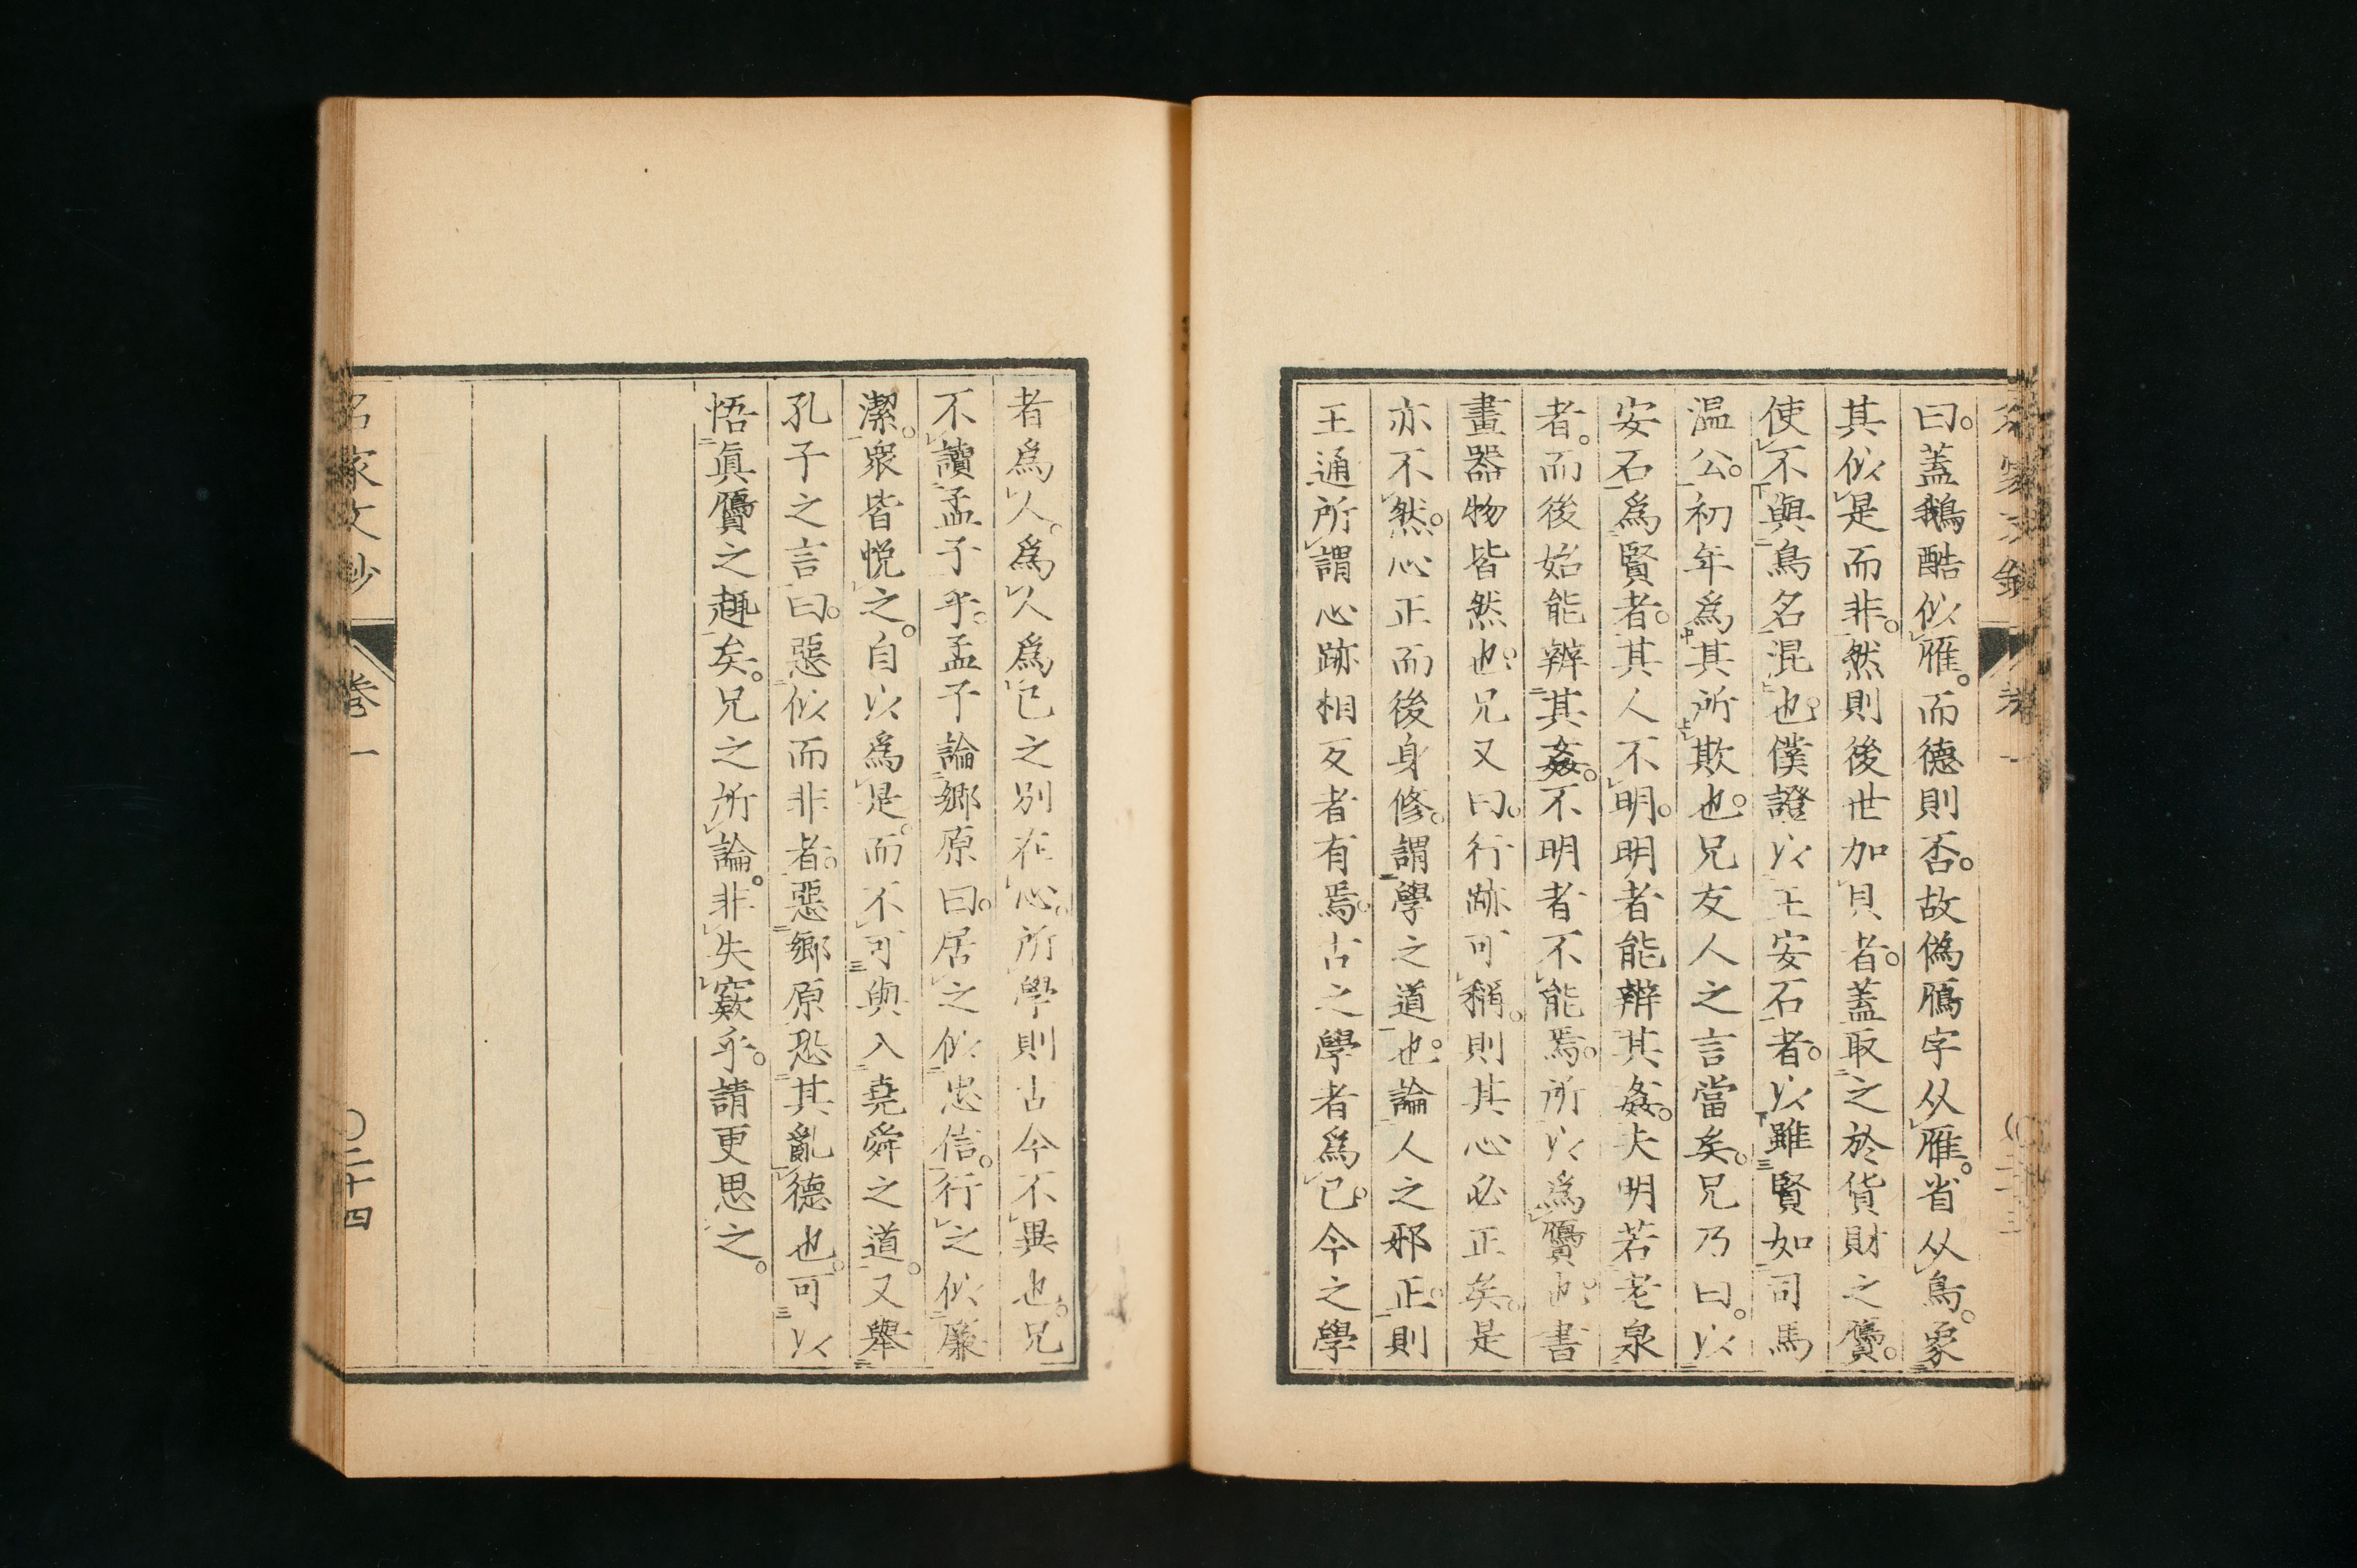 名家文鈔 卷一
曰。蓋鵝酷似雁。而德則否。故僞鴈字从雁。省从鳥。象
其似是而非。然則後世加貝者。蓋取之於貨財之贗。
使不與鳥名混也。僕證以王安石者。以雖賢如司馬
温公。初年爲其所欺也。兄友人之言當矣。兄乃曰。以
安石爲賢者。其人不明。明者能辨其姦。夫明若老泉
者。而後始能辨其姦。不明者不能焉。所以爲贗也。書
畫器物皆然也。兄又曰。行跡可稱。則其心必正矣。是
亦不然。心正而後身修。謂學之道也。論人之邪正。則
王通所謂心跡相反者有焉。古之學者爲己。今之學
者爲人。爲人爲己之別在心。所學則古今不異也。兄
不讀孟子乎。孟子論鄉原曰。居之似忠信。行之似廉
潔。衆皆悦之。自以爲是。而不可與入堯舜之道。又舉
孔子之言曰。惡似而非者。惡鄉原恐其亂德也。可以
悟眞贗之趣矣。兄之所論。非失窾乎。請更思之。
名家文鈔 卷一 〇二十四